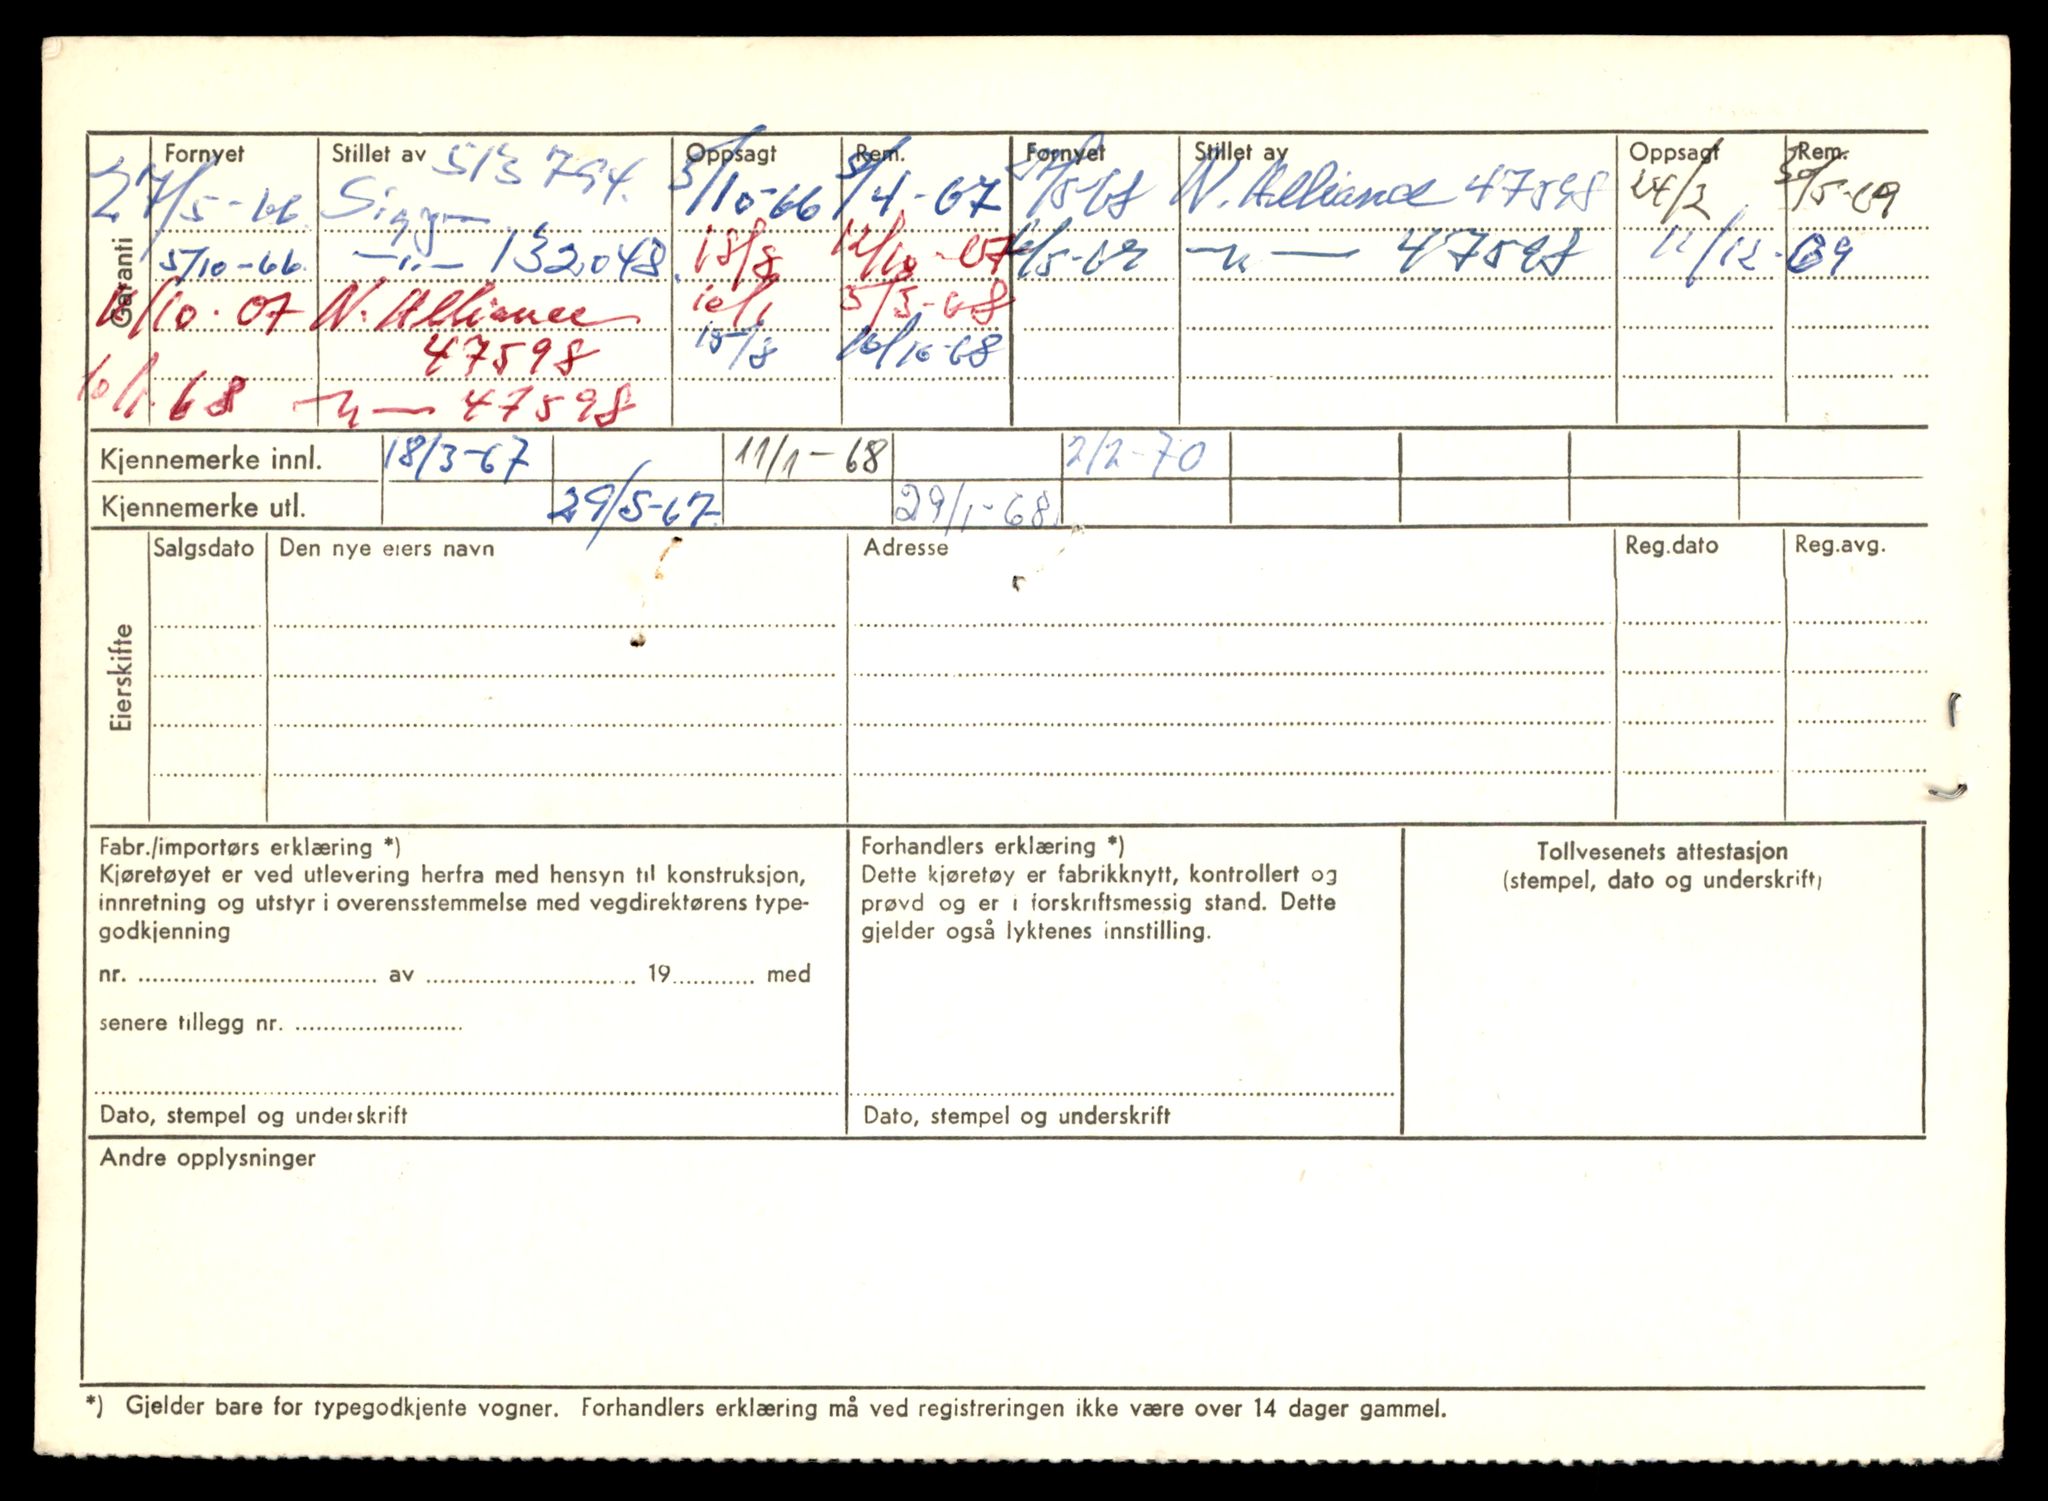 Garanti
Fornyet Stillet av Oppsagt Rem. Fornyet Stillet av Oppsagt Rem.
513794.
27/5-66 Sigyn 5/10-66 5/4-67 /5-68 N. Alliance 47598 24/2 30/5-69
5/10-66 -"- 132048 18/8 12/10-67 /5-69 -"- 47598 11/12-69
/10-67 N. Alliance 10/1 5/3-68
47598 15/8 16/10-68
10/1-68 -"- 47598
Kjennemerke innl. 18/3-67 11/1-68 2/2-70
Kjennemerke utl. 29/5-67 29/1-68
Eierskifte
Salgsdato Den nye eiers navn Adresse Reg.dato Reg.avg.
Fabr./importørs erklæring *)
Kjøretøyet er ved utlevering herfra med hensyn til konstruksjon,
innretning og utstyr i overensstemmelse med vegdirektørens type-
godkjenning
nr. .................... av .................... 19.......... med
senere tillegg nr. ....................
Dato, stempel og underskrift
Forhandlers erklæring *)
Dette kjøretøy er fabrikknytt, kontrollert og
prøvd og er i forskriftsmessig stand. Dette
gjelder også lyktenes innstilling.
Dato, stempel og underskrift
Tollvesenets attestasjon
(stempel, dato og underskrift)
Andre opplysninger
*) Gjelder bare for typegodkjente vogner. Forhandlers erklæring må ved registreringen ikke være over 14 dager gammel.